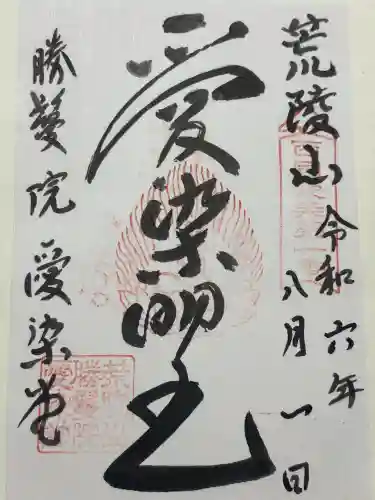 荒陵山
令和六年
八月一日
愛染明王
勝鬘院愛染堂